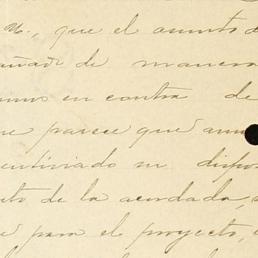 que el asunto d
añadir de manera
en contra de
ne parece que
entiviado su dispos
to de la acordada,
para el proyecto,